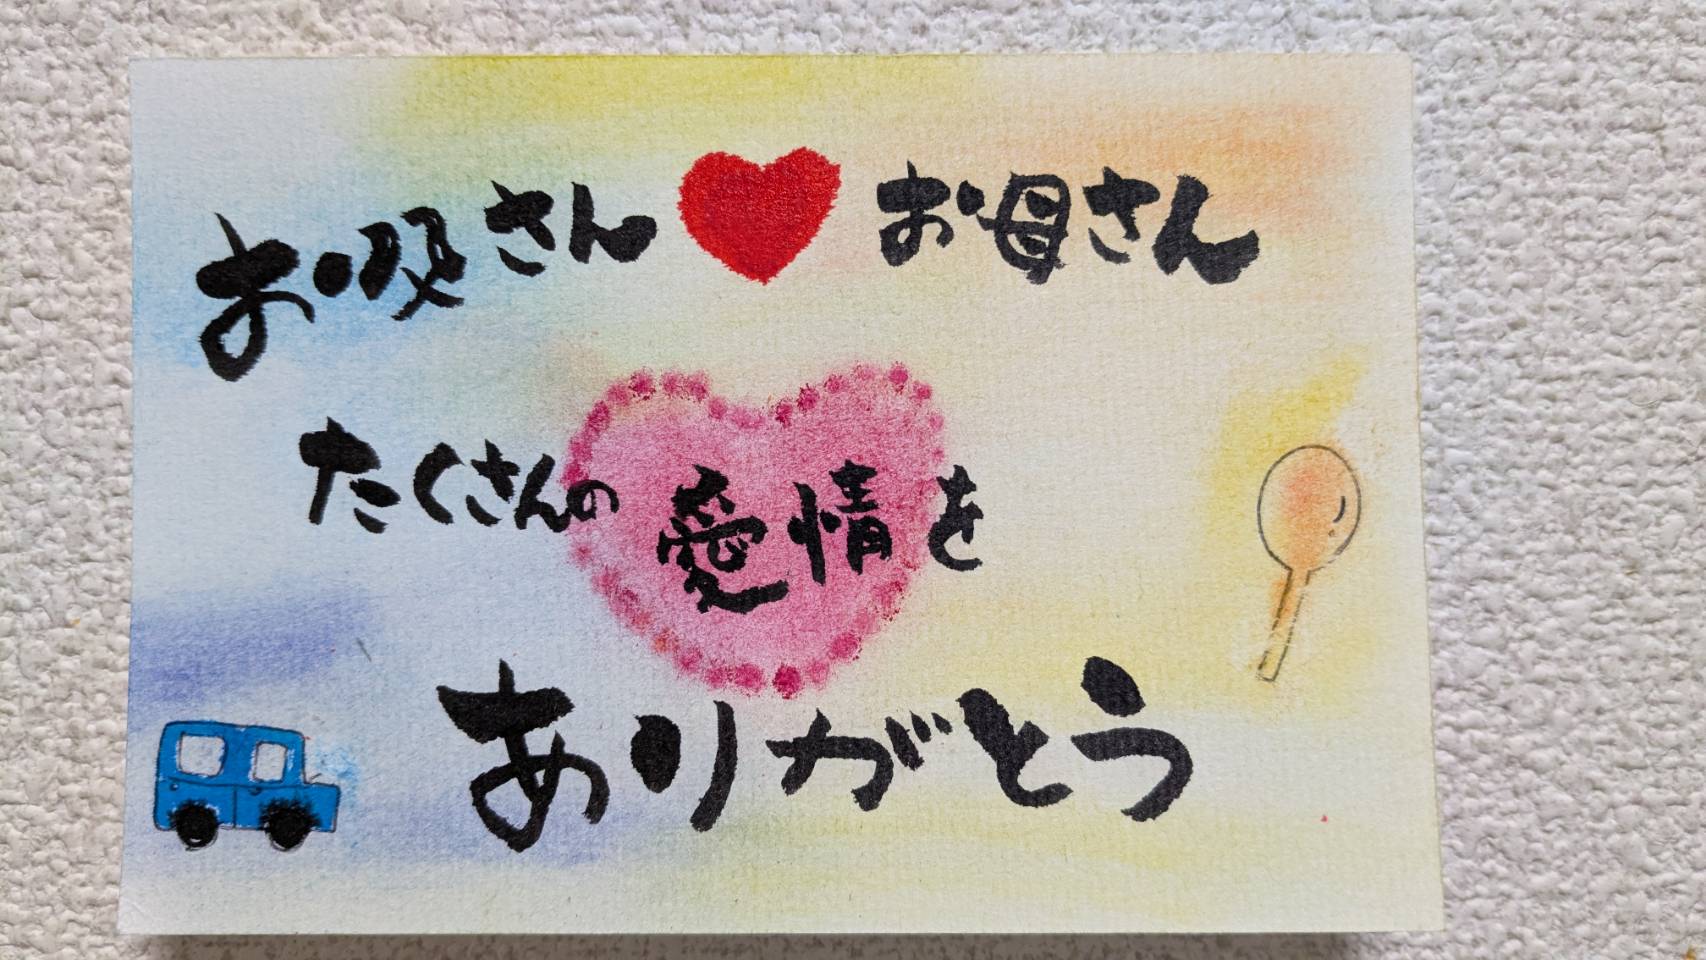 お父さん❤お母さん
たくさんの愛情を
ありがとう